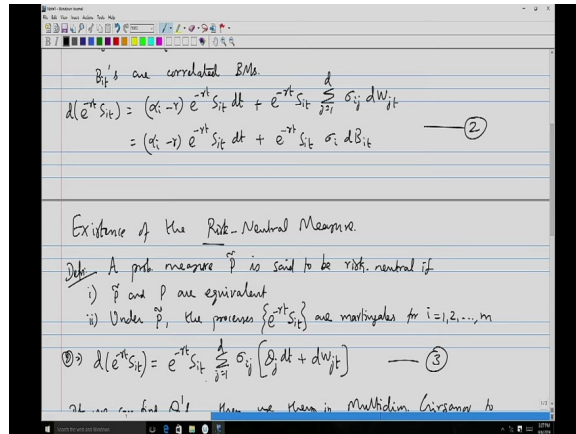 B_it's are correlated BMs.
d(e^{-rt} S_it) = (α_i - r) e^{-rt} S_it dt + e^{-rt} S_it \sum_{j=1}^{d} σ_ij dW_jt
= (α_i - r) e^{-rt} S_it dt + e^{-rt} S_it σ_i dB_it —— ②
Existence of the Risk-Neutral Measure.
Defn. A prob. measure P̃ is said to be risk-neutral if
i) P̃ and P are equivalent
ii) Under P̃, the processes {e^{-rt} S_it} are martingales for i=1,2,...,m
② ⇒ d(e^{-rt} S_it) = e^{-rt} S_it \sum_{j=1}^{d} σ_ij [θ_j dt + dW_jt] —— ③
If we can find θ's, then we them in Multidim. Girsanov to